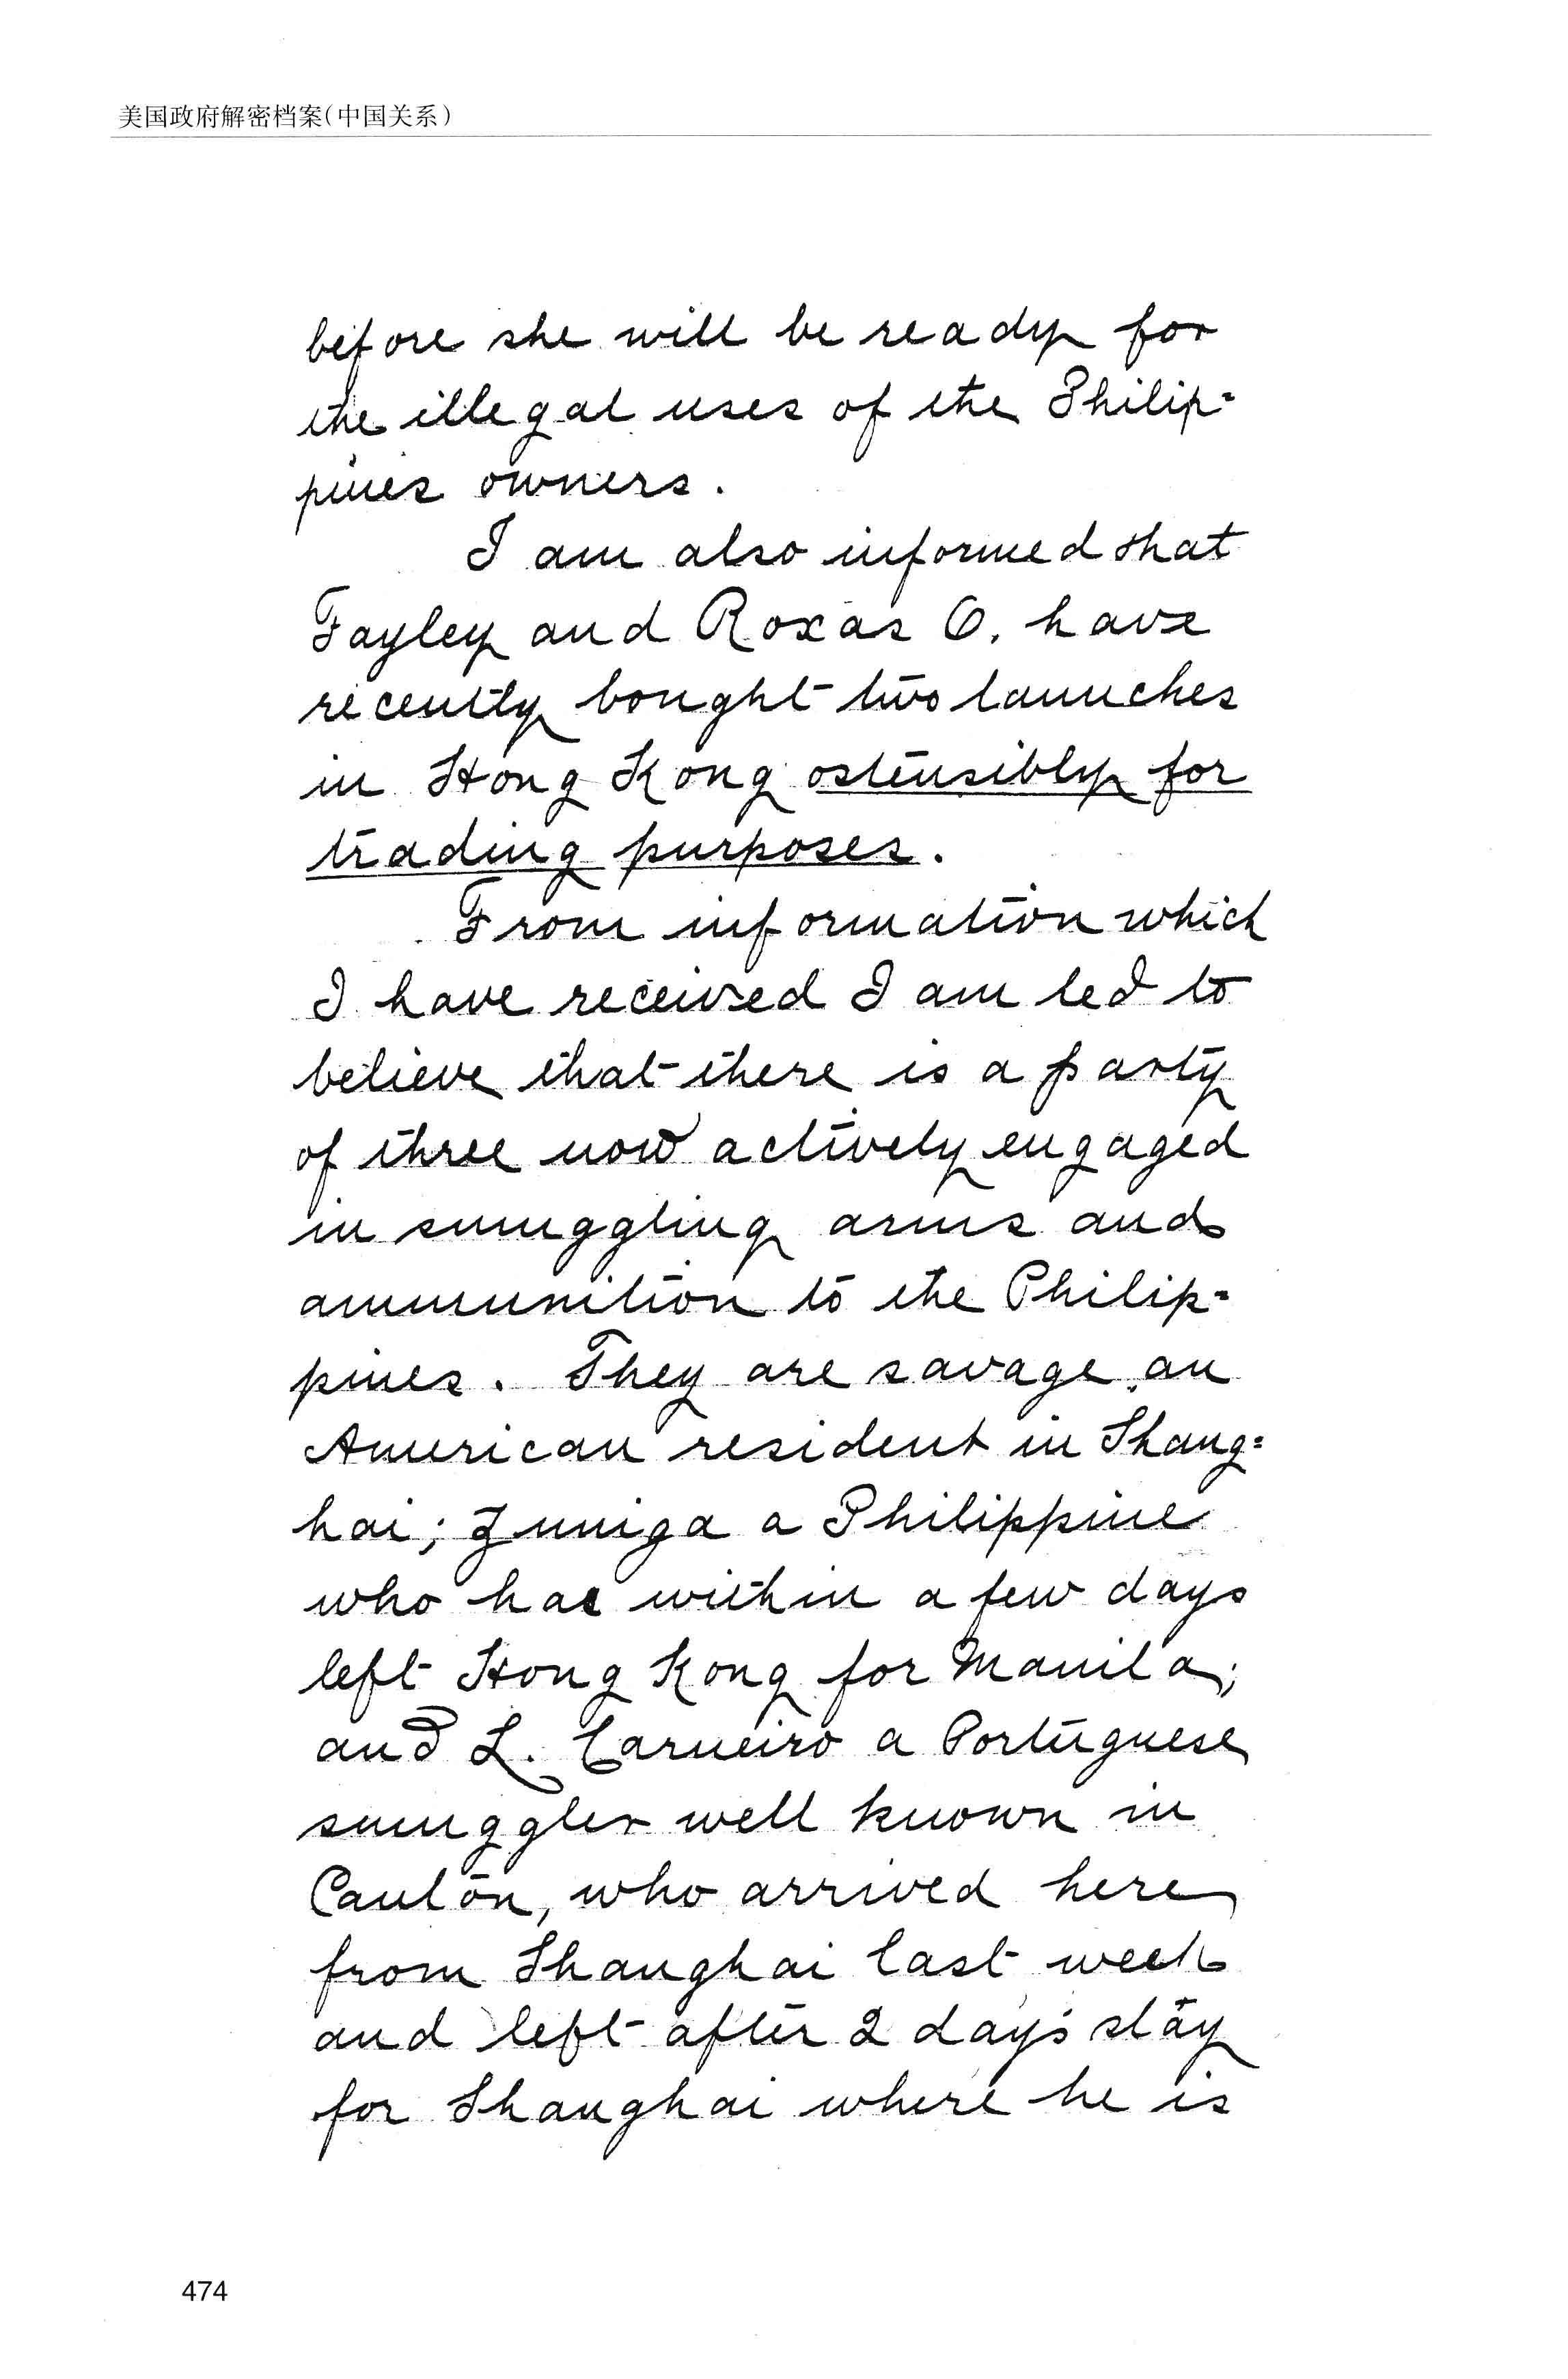 美国政府解密档案(中国关系)
before she will be ready for
the illegal uses of the Philip=
pines owners.
I am also informed that
Tayley and Roxas O. have
recently bought two launches
in Hong Kong ostensibly for
trading purposes.
From information which
I have received I am led to
believe that there is a party
of three now actively engaged
in smuggling arms and
ammunition to the Philip=
pines. They are savage an
American resident in Shang=
hai; Zuniga a Philippine
who has within a few days
left Hong Kong for Manila;
and L. Carneiro a Portuguese
smuggler well known in
Canton, who arrived here
from Shanghai last week
and left after 2 days stay
for Shanghai where he is
474